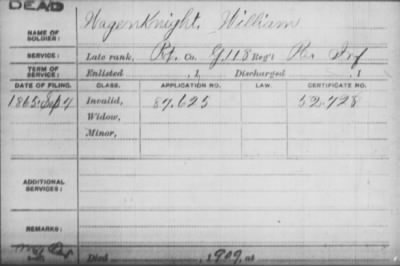 DEAD
NAME OF SOLDIER: Wagenknight, William
SERVICE: Late rank, Pt. Co. G 118 Reg't Inf
TERM OF SERVICE: Enlisted , 1 Discharged , 1
DATE OF FILING. CLASS. APPLICATION NO. LAW. CERTIFICATE NO.
1865 Sep 7 Invalid, 87.625 52.728
Widow,
Minor,
ADDITIONAL SERVICES:
REMARKS:
Died , 1909, at